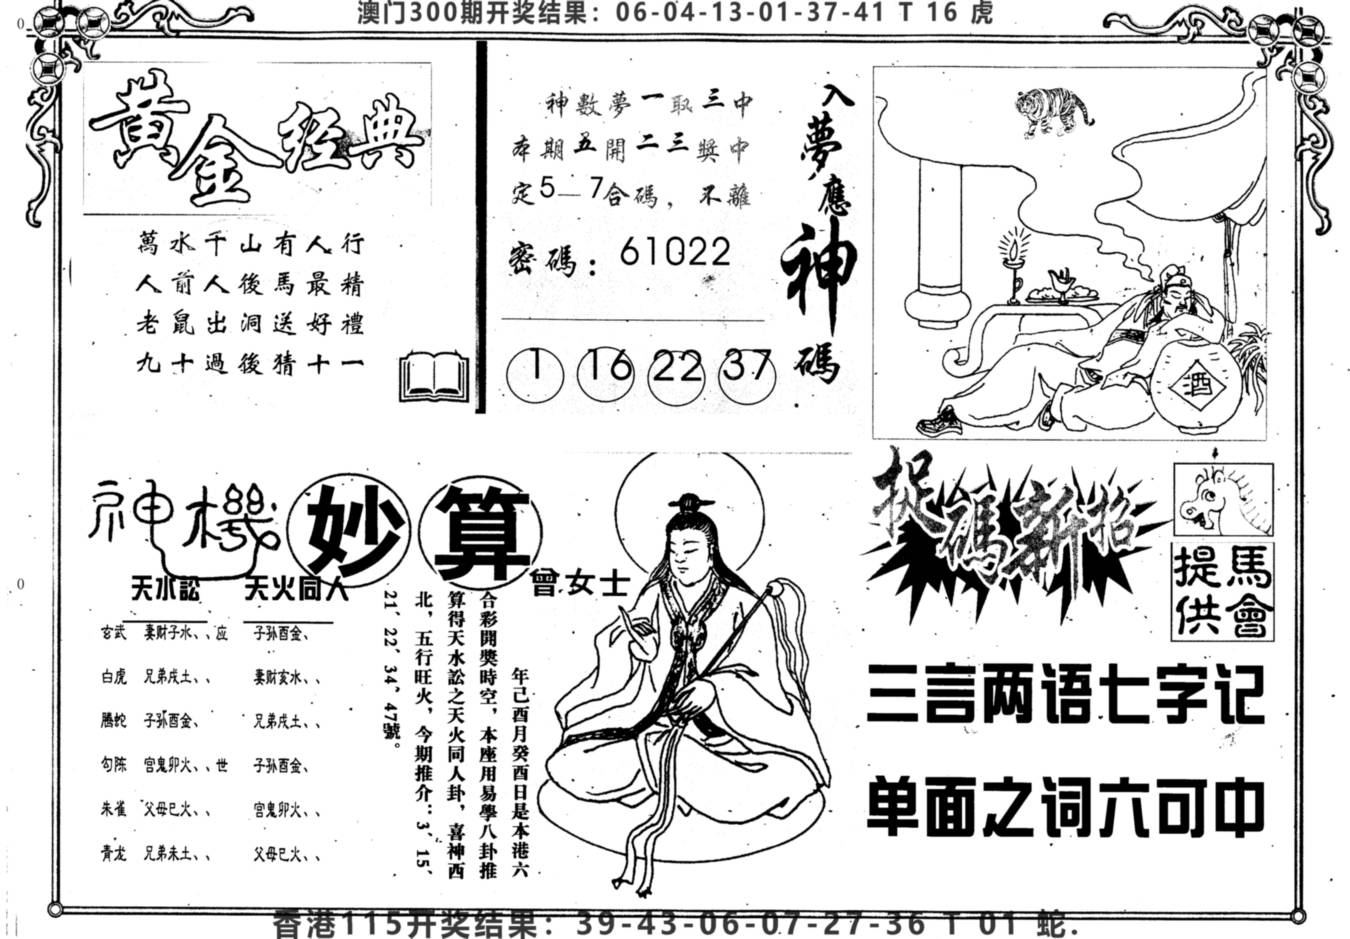 澳门300期开奖结果：06-04-13-01-37-41 T 16 虎
黄金经典
萬水千山有人行
人前人後馬最精
老鼠出洞送好禮
九十過後猜十一
神數夢一取三中
本期五開二三獎中
定5—7合碼，不離
密碼：61022
1 16 22 37
入夢應神碼
酒
神機妙算
曾女士
天水訟 天火同人
玄武 妻财子水、、应 子孙酉金、
白虎 兄弟戌土、、 妻财亥水、、
腾蛇 子孙酉金、 兄弟戌土、、
勾陈 官鬼卯火、、世 子孙酉金、
朱雀 父母巳火、、 官鬼卯火、、
青龙 兄弟未土、、 父母巳火、、
年己酉月癸酉日是本港六
合彩開獎時空，本座用易學八卦推
算得天水訟之天火同人卦，喜神西
北，五行旺火，今期推介：3、15、
21、22、34、47號。
捉碼新招
馬會
提供
三言两语七字记
单面之词六可中
香港115开奖结果：39-43-06-07-27-36 T 01 蛇.